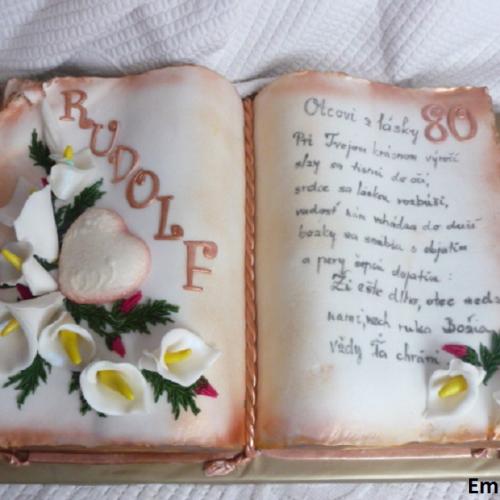 RUDOLF
Otcovi z lásky 80
Pri Tvojom krásnom výročí
slzy sa tisnú do očí,
srdce sa láskou rozbúši,
radosť nám vchádza do duší
bozky sa snúbia s objatím
a pery šepcú dojatím:
Ži ešte dlho, otec medzi
nami, nech ruka Božia
vždy Ťa chráni
Em